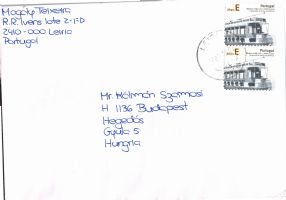 Magaly Teixeira
R.R. Ivens lote 2-1ºD
2410-000 Leiria
Portugal
Portugal
E
Portugal
E
Mr. Kálmán Szarmasi
H 1136 Budapest
Hegedős
Gyula 5
Hungria